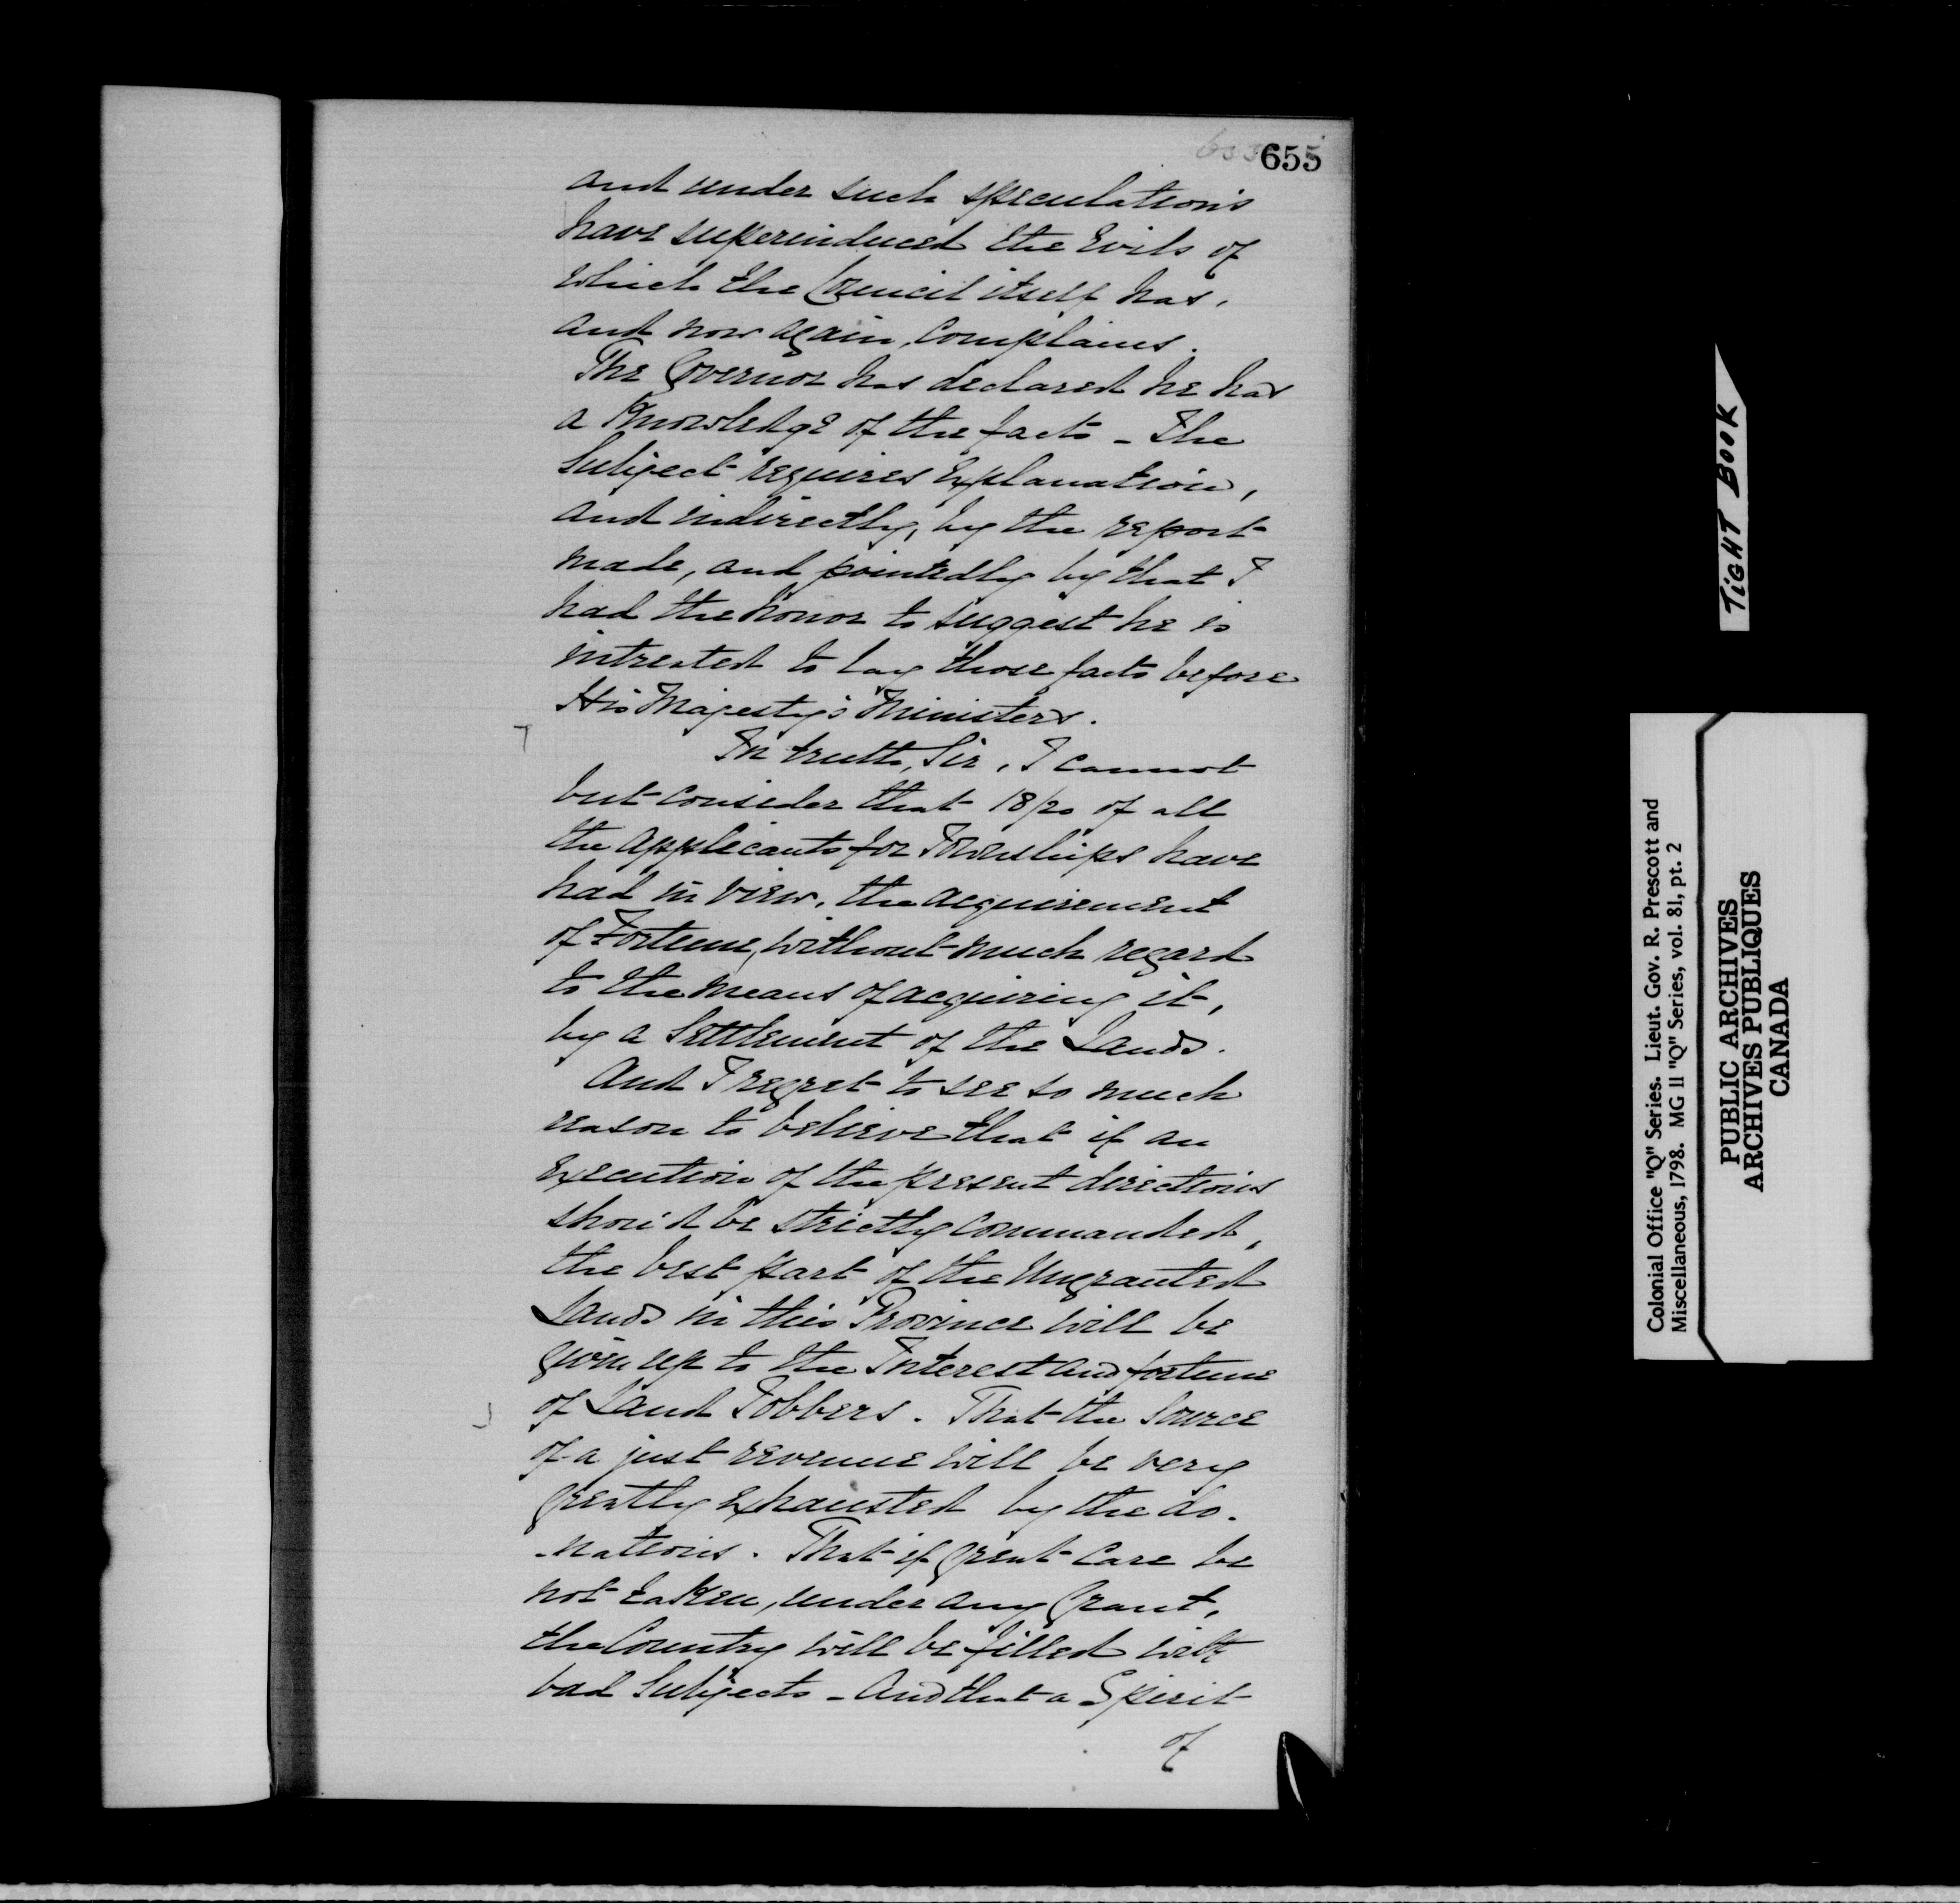 655
and under such speculations
have superinduced the Evils of
which the Council itself has,
and now again, complains.
The Governor has declared he has
a Knowledge of the facts - The
Subject requires Explanation,
and indirectly, by the report
made, and pointedly by that I
had the honor to suggest he is
intreated to lay those facts before
His Majesty's Ministers.
In truth, Sir, I cannot
but consider that 18/20 of all
the applicants for Townships have
had in view, the acquirement
of Fortune, without much regard
to the means of acquiring it,
by a Settlement of the Lands.
And I regret to see so much
reason to believe that if an
Execution of the present directions
shou'd be strictly commanded,
the best part of the Ungranted
Lands in this Province will be
given up to the Interest and fortune
of Land Jobbers. That the Source
of a just revenue will be very
greatly exhausted by the do-
-nations. That if great care be
not taken, under any Grant,
the Country will be filled with
bad Subjects - And that a Spirit
of
TIGHT BOOK
Colonial Office "Q" Series. Lieut. Gov. R. Prescott and
Miscellaneous, 1798. MG 11 "Q" Series, vol. 81, pt. 2
PUBLIC ARCHIVES
ARCHIVES PUBLIQUES
CANADA